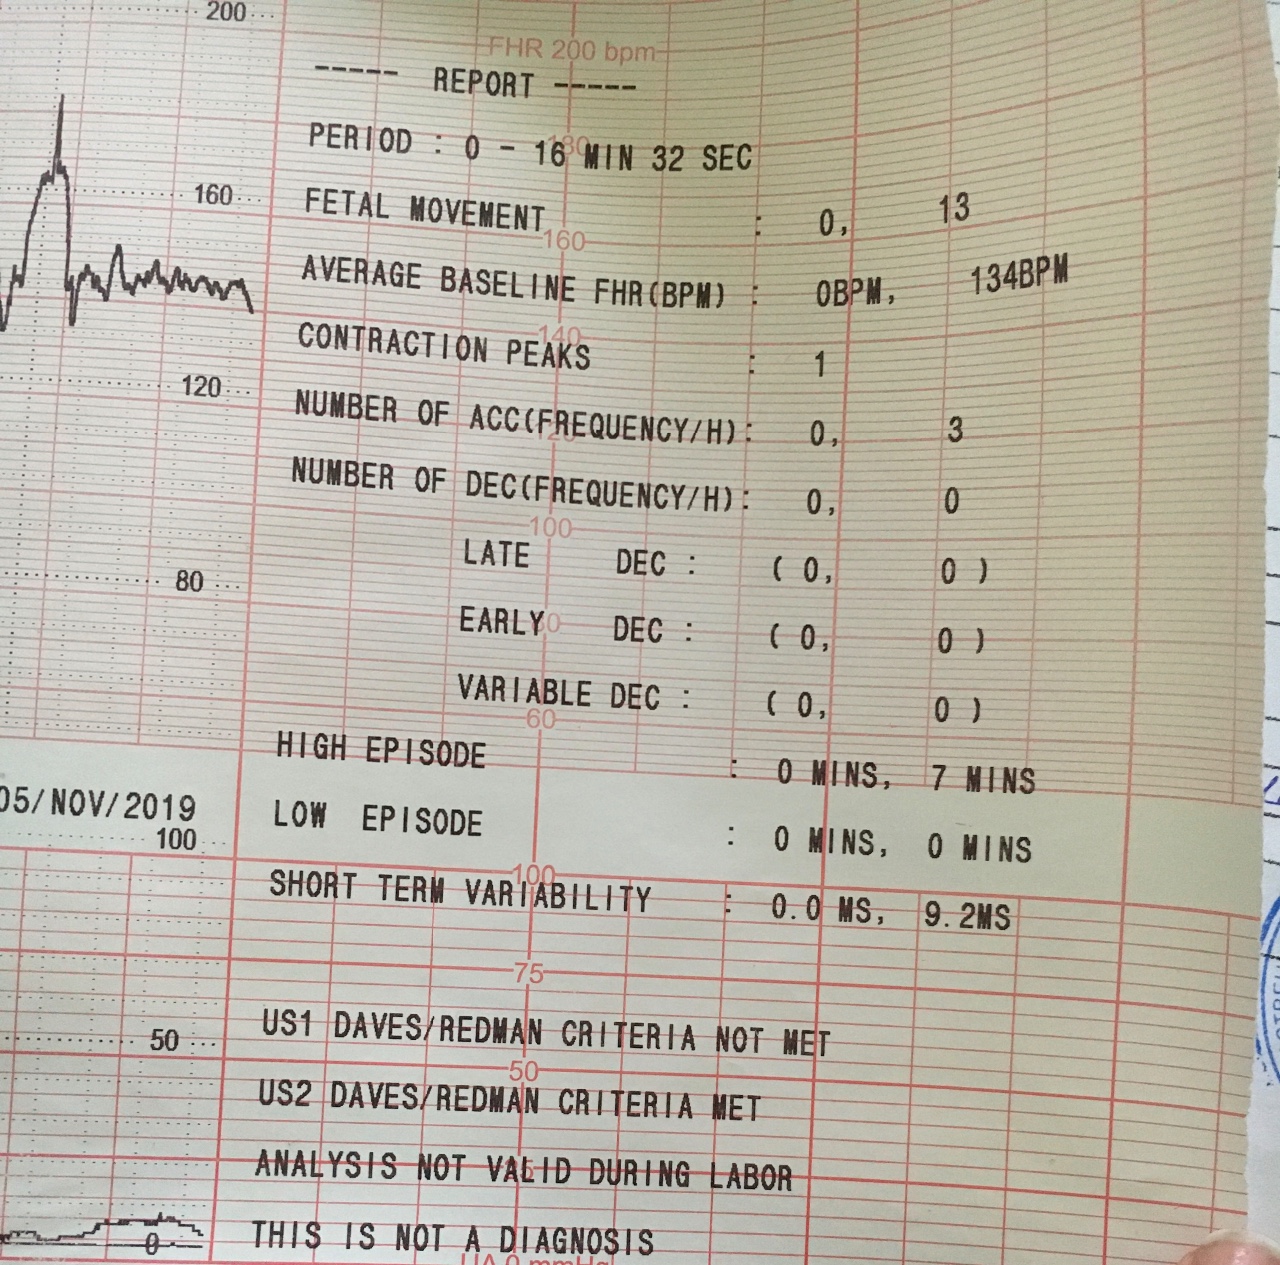 200
FHR 200 bpm
----- REPORT -----
PERIOD : 0 - 16 MIN 32 SEC
160
FETAL MOVEMENT : 0, 13
160
AVERAGE BASELINE FHR(BPM) : 0BPM, 134BPM
140
CONTRACTION PEAKS : 1
120
NUMBER OF ACC(FREQUENCY/H): 0, 3
NUMBER OF DEC(FREQUENCY/H): 0, 0
100
LATE DEC : ( 0, 0 )
80
EARLY DEC : ( 0, 0 )
VARIABLE DEC : ( 0, 0 )
60
HIGH EPISODE : 0 MINS, 7 MINS
05/NOV/2019
LOW EPISODE : 0 MINS, 0 MINS
100
100
SHORT TERM VARIABILITY : 0.0 MS, 9.2MS
75
US1 DAVES/REDMAN CRITERIA NOT MET
50
50
US2 DAVES/REDMAN CRITERIA MET
ANALYSIS NOT VALID DURING LABOR
THIS IS NOT A DIAGNOSIS
0
UA 0 mmHg